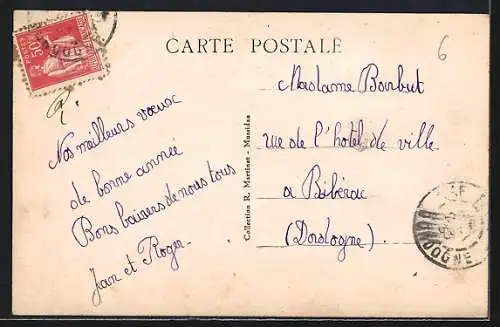 50c
POSTES
CARTE POSTALE
6
R.
Nos meilleurs vœux
de bonne année
Bons baisers de nous tous
Jean et Roger
Collection R. Martinet - Mussidan
Madame Barbut
rue de l'hôtel de ville
a Ribérac
(Dordogne)
DOGNE